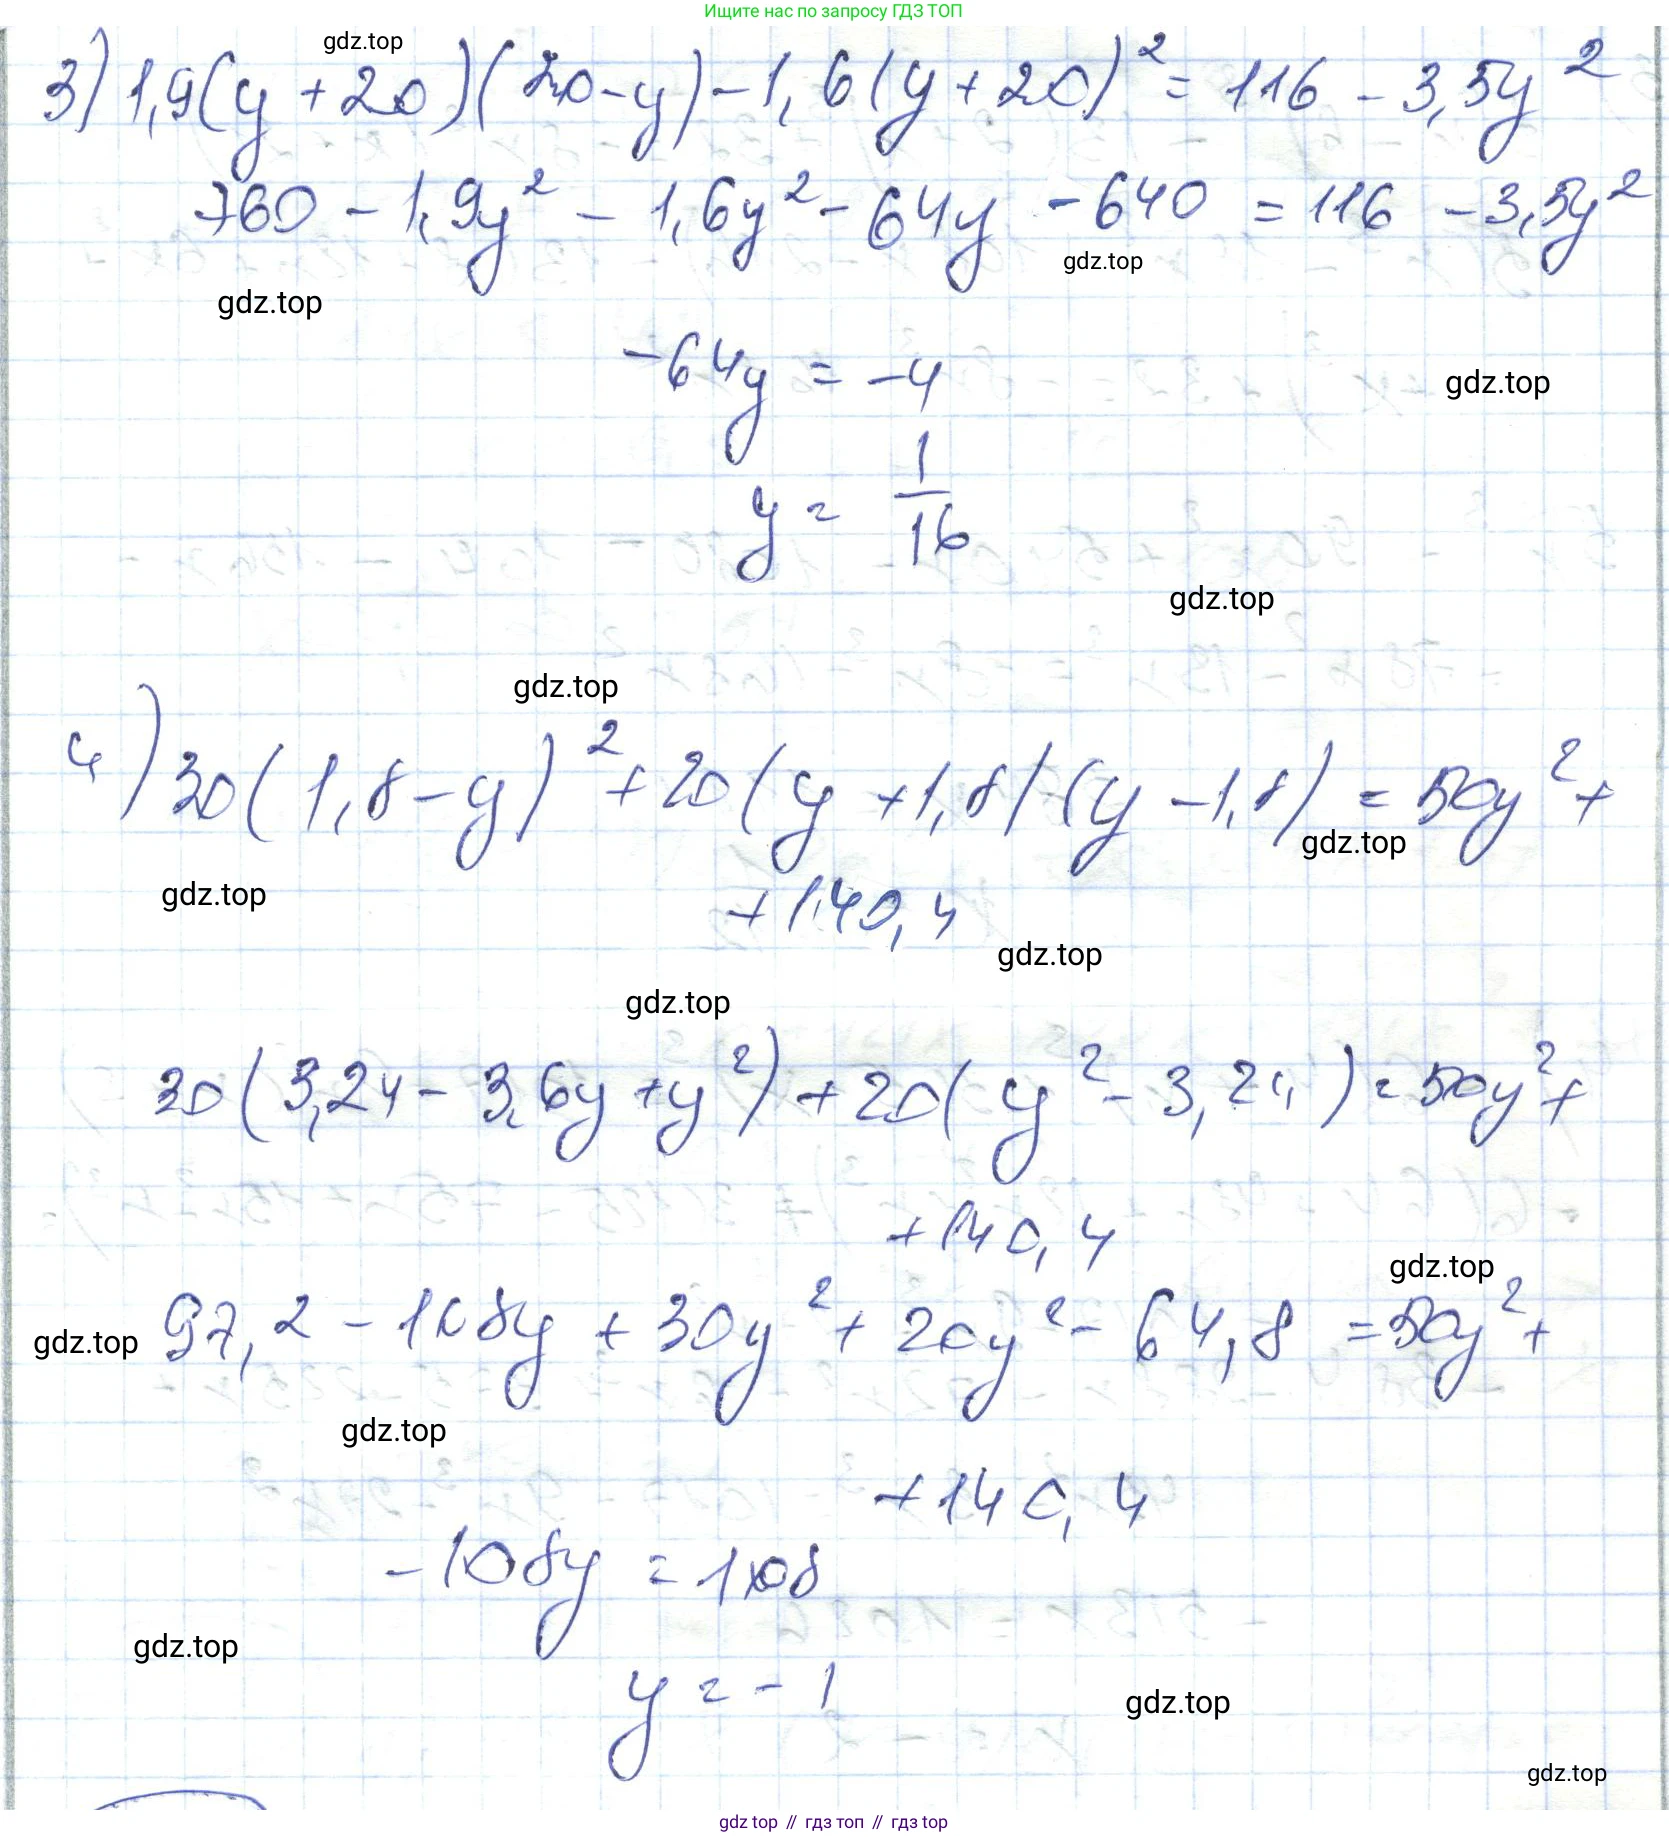 Ищите нас по запросу ГДЗ ТОП
gdz.top
3) 1,9(y + 20)(20 - y) - 1,6(y + 20)² = 116 - 3,5y²
760 - 1,9y² - 1,6y² - 64y - 640 = 116 - 3,5y²
gdz.top
gdz.top
-64y = -4
gdz.top
y = 1/16
gdz.top
gdz.top
4) 30(1,8 - y)² + 20(y + 1,8)(y - 1,8) = 50y² +
gdz.top
gdz.top
+ 140,4
gdz.top
gdz.top
30(3,24 - 3,6y + y²) + 20(y² - 3,24) = 50y² +
+ 140,4
gdz.top
gdz.top
97,2 - 108y + 30y² + 20y² - 64,8 = 50y² +
gdz.top
+ 140,4
-108y = 108
gdz.top
y = -1
gdz.top
gdz.top
gdz top // гдз топ // gdz top